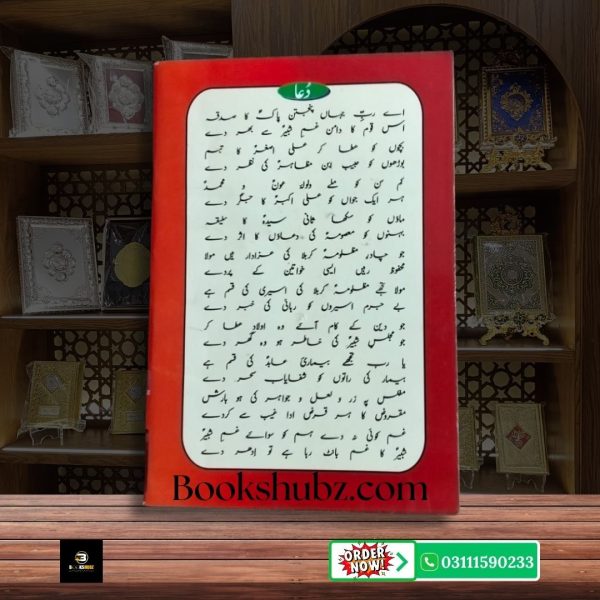 دُعا
اے ربِ جہاں پنجتنِ پاکؑ کا صدقہ
اس قوم کا دامن غمِ شبیرؑ سے بھر دے
بچوں کو عطا کر علی اصغرؑ کا تبسم
بوڑھوں کو حبیب ابنِ مظاہرؑ کی نظر دے
کم سن کو ملے ولولہ عونؑ و محمدؑ
ہر ایک جواں کو علی اکبرؑ کا جگر دے
ماؤں کو سکھا ثانی سیدہؑ کا سلیقہ
بہنوں کو معصومہؑ کی دعاؤں کا اثر دے
جو چادرِ مظلومۂ کربلا کی عزادار ہیں مولا
محفوظ رہیں ایسی خواتین کے پردے
مولا تجھے مظلومۂ کربلا کی اسیری کی قسم ہے
بے جرم اسیروں کو رہائی کی خبر دے
جو دین کے کام آئے وہ اولاد عطا کر
جو مجلسِ شبیرؑ کی خاطر ہو وہ گھر دے
یا رب تجھے بیماری عابدؑ کی قسم ہے
بیمار کی راتوں کو شفایاب سحر دے
مفلس پہ زر و لعل و جواہر کی ہو بارش
مقروض کا ہر قرض ادا غیب سے کردے
غم کوئی نہ دے ہم کو سوائے غمِ شبیرؑ
شبیرؑ کا غم بانٹ رہا ہے تو ادھر دے
Bookshubz.com
ORDER NOW!
03111590233